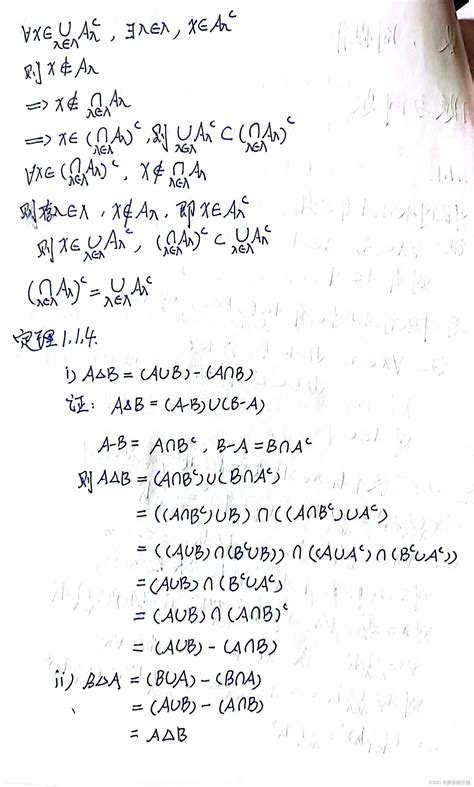 ∀x∈∪_{λ∈Λ}A_λ^c, ∃λ∈Λ, x∈A_λ^c
则 x∉A_λ
⇒ x∉∩_{λ∈Λ}A_λ
⇒ x∈(∩_{λ∈Λ}A_λ)^c, 则 ∪_{λ∈Λ}A_λ^c ⊂ (∩_{λ∈Λ}A_λ)^c
∀x∈(∩_{λ∈Λ}A_λ)^c, x∉∩_{λ∈Λ}A_λ
则存λ∈Λ, x∉A_λ, 即 x∈A_λ^c
则 x∈∪_{λ∈Λ}A_λ^c, (∩_{λ∈Λ}A_λ)^c ⊂ ∪_{λ∈Λ}A_λ^c
(∩_{λ∈Λ}A_λ)^c = ∪_{λ∈Λ}A_λ^c
定理1.1.4.
i) A△B = (A∪B)-(A∩B)
证: A△B = (A-B)∪(B-A)
A-B = A∩B^c, B-A = B∩A^c
则 A△B = (A∩B^c)∪(B∩A^c)
= ((A∩B^c)∪B)∩((A∩B^c)∪A^c)
= ((A∪B)∩(B^c∪B))∩((A∪A^c)∩(B^c∪A^c)
= (A∪B)∩(B^c∪A^c)
= (A∪B)∩(A∩B)^c
= (A∪B)-(A∩B)
ii) B△A = (B∪A)-(B∩A)
= (A∪B)-(A∩B)
= A△B